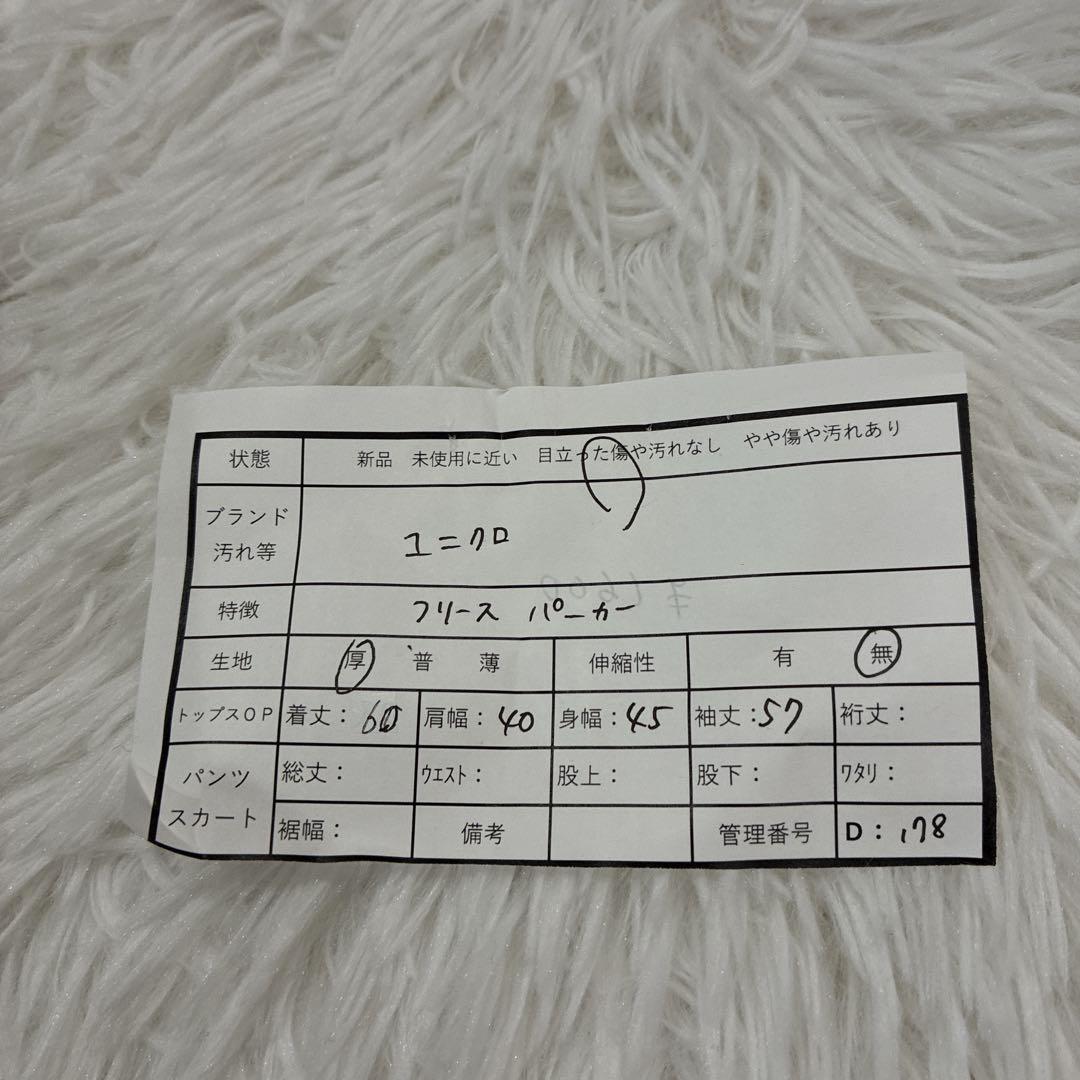 状態 新品 未使用に近い 目立った傷や汚れなし やや傷や汚れあり
ブランド
汚れ等
ユニクロ
特徴 フリース パーカー
生地 厚 普 薄 伸縮性 有 無
トップスOP 着丈: 60 肩幅: 40 身幅: 45 袖丈: 57 裄丈:
パンツ
スカート
総丈: ウエスト: 股上: 股下: ワタリ:
裾幅: 備考 管理番号 D: 178